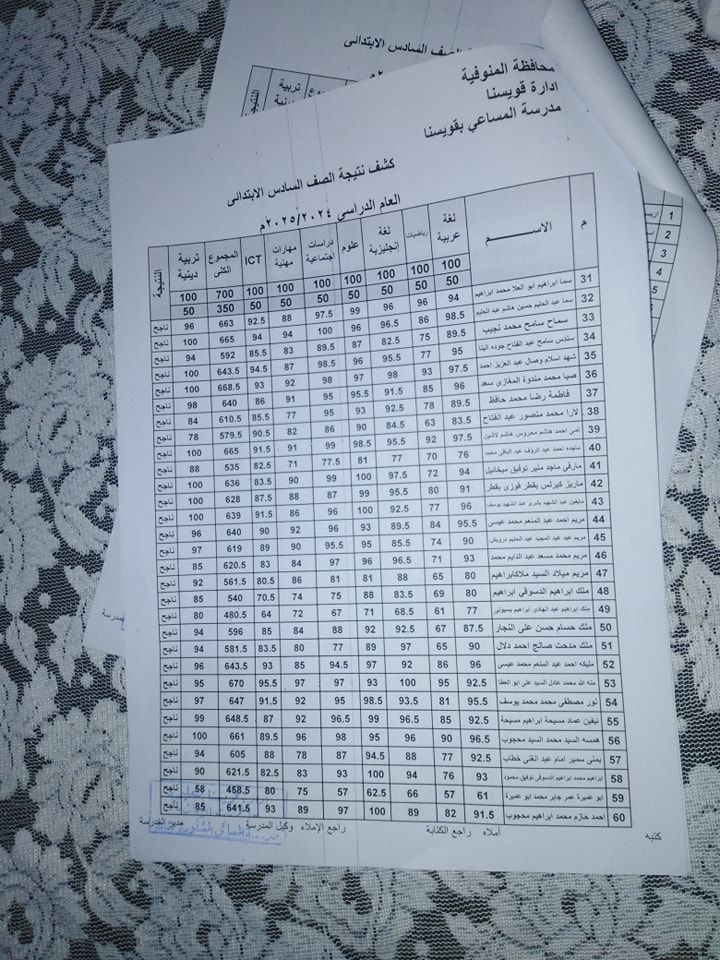 الصف السادس الابتدائى
النتيجة
تربية
دينية
محافظة المنوفية
ادارة قويسنا
مدرسة المساعي بقويسنا
كشف نتيجة الصف السادس الابتدائى
العام الدراسي ٢٠٢٥/٢٠٢٤م
م الاســــــم لغة عربية رياضيات لغة إنجليزية علوم دراسات اجتماعية مهارات مهنية ICT المجموع الكلى تربية دينية النتيجة
100 100 100 100 100 100 100 700 100
50 50 50 50 50 50 50 350 50
31 سما ابراهيم ابو العلا محمد ابراهيم 94 96 96 99 97.5 88 92.5 663 96 ناجح
32 سما عبد الحليم حسين هاشم عبد الحليم 98.5 86 96.5 96 100 94 94 665 100 ناجح
33 سماح سامح محمد نجيب 89.5 75 82.5 87 89.5 83 85.5 592 94 ناجح
34 سندس سامح عبد الفتاح جوده البنا 95 77 95.5 96 98.5 87 94.5 643.5 100 ناجح
35 شهد اسلام وصال عبد العزيز احمد 97.5 93 98 97 98 92 93 668.5 100 ناجح
36 صبا محمد مندوة المغازى سعد 96 85 91.5 95.5 95 91 86 640 98 ناجح
37 فاطمة رضا محمد حافظ 89.5 78 92.5 93 95 77 85.5 610.5 84 ناجح
38 لارا محمد منصور عبد الفتاح 83.5 63 84.5 90 86 82 90.5 579.5 78 ناجح
39 لمى احمد هاشم محروس هاشم لاشين 97.5 92 95.5 98.5 99 91 91.5 665 100 ناجح
40 ماجده احمد عبد الروف عبد الباقى محمد 76 70 77 81 77.5 71 82.5 535 88 ناجح
41 مارفى ماجد منير توفيق ميخائيل 94 72 97.5 100 99 90 83.5 636 100 ناجح
42 ماريز كيرلس بقطر فوزى بقطر 91 80 95.5 99 87 88 87.5 628 100 ناجح
43 مايفين عبد الشهيد بشرى عبد الشهيد يوسف 96 77 92.5 100 96 86 91.5 639 100 ناجح
44 مريم احمد عبد المنعم محمد عيسى 95.5 84 89.5 93 96 92 90 640 96 ناجح
45 مريم عبد عبد المجيد عبد الحليم درويش 90 74 85.5 95 95.5 90 89 619 97 ناجح
46 مريم محمد مسعد عبد الدايم محمد 93 71 96.5 96 97 84 83 620.5 85 ناجح
47 مريم ميلاد السيد ملاكابراهيم 80 65 88 81 81 86 80.5 561.5 92 ناجح
48 ملك ابراهيم الدسوقى ابراهيم 80 69 83.5 88 75 74 70.5 540 85 ناجح
49 ملك ابراهيم عبد الهادى ابراهيم بسيونى 77 61 68.5 71 67 72 64 480.5 80 ناجح
50 ملك حسام حسن على النجار 87.5 67 92.5 92 88 84 85 596 94 ناجح
51 ملك مدحت صالح احمد دلال 90 65 97 89 77 80 83.5 581.5 94 ناجح
52 مليكه احمد عبد المنعم محمد عيسى 96 86 92 97 94.5 85 93 643.5 96 ناجح
53 منه الله محمد عادل السيد على ابو العطا 92.5 95 100 93 97 97 95.5 670 95 ناجح
54 نور مصطفى محمد محمد يوسف 95.5 81 93.5 98.5 95 92 91.5 647 97 ناجح
55 نيفين عماد مسيحة ابراهيم مسيحة 92.5 85 96.5 99 96.5 92 87 648.5 99 ناجح
56 همسه السيد محمد السيد محجوب 96.5 90 96 95 98 96 89.5 661 100 ناجح
57 يمنى سمير امام عبد الغنى خطاب 92.5 77 88 94.5 87 78 88 605 94 ناجح
58 ابراهيم محمد ابراهيم الدسوقى توفيق محمود 93 76 94 100 93 83 82.5 621.5 90 ناجح
59 ابو عميرة عمر جابر محمد ابو عميرة 61 57 66 62.5 57 75 80 458.5 58 ناجح
60 احمد حازم محمد ابراهيم محجوب 91.5 82 89 100 97 89 93 641.5 85 ناجح
كتبه أملاه راجع الكتابة راجع الإملاء وكيل المدرسة مدير المدرسة